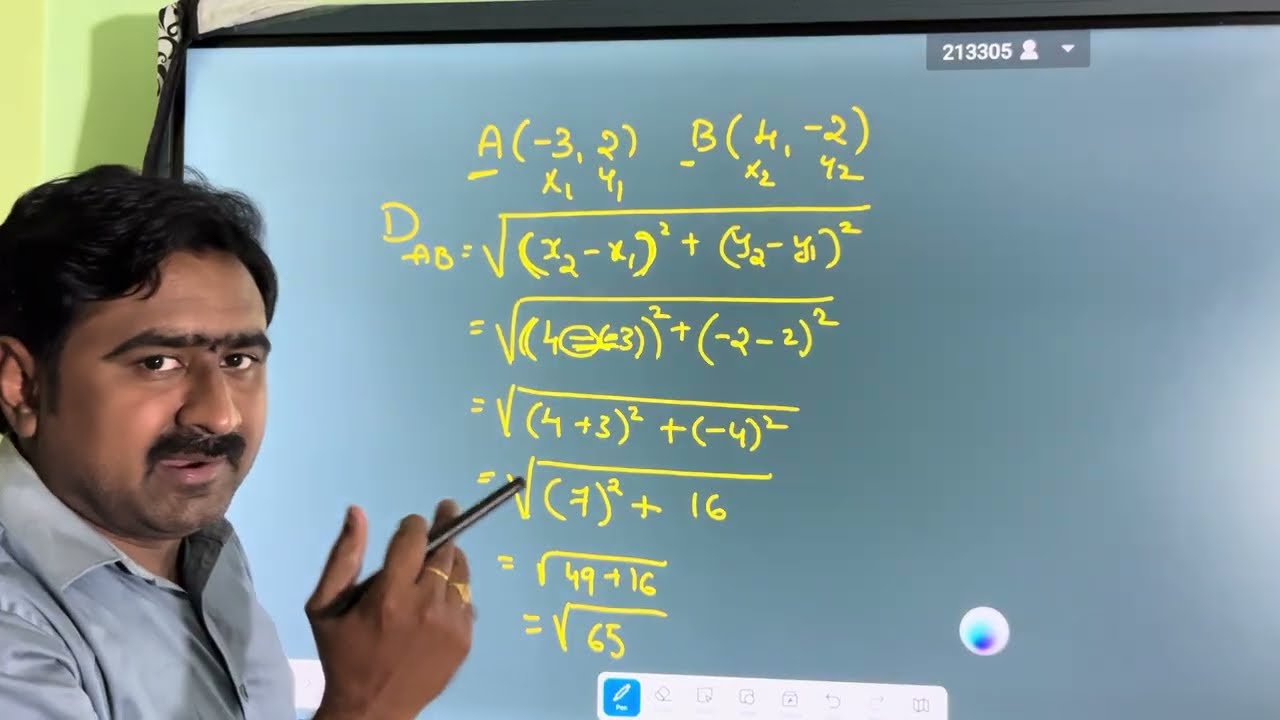 213305
A(-3, 2) B(4, -2)
x₁ y₁ x₂ y₂
D_AB = √((x₂ - x₁)² + (y₂ - y₁)²)
= √((4 - (-3))² + (-2 - 2)²)
= √((4 + 3)² + (-4)²)
= √((7)² + 16)
= √(49 + 16)
= √65
Pen